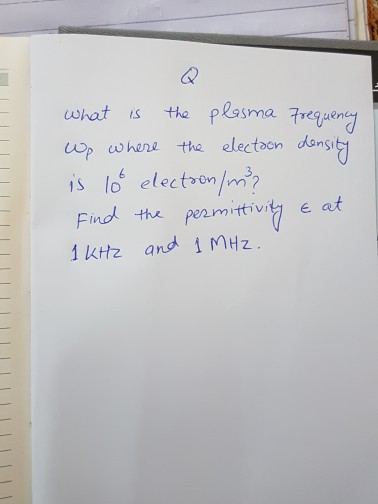 Q
What is the plasma Frequency
ωp where the electron density
is 10⁶ electron/m³?
Find the permittivity ε at
1 KHz and 1 MHz.